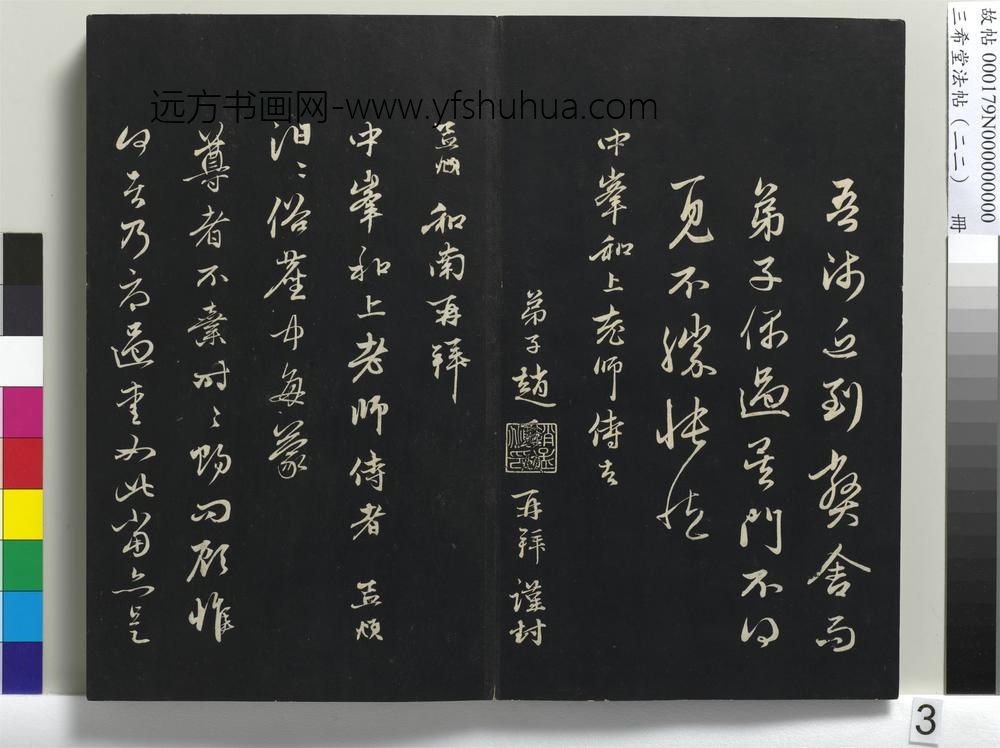 吾師近到弊舍而
弟子偶過吴門不得
一見不勝悵
中峯和上老師侍者
弟子趙
再拜謹封
孟頫和南再拜
中峯和上老師侍者 孟頫
汨汨俗塵中每蒙
尊者不棄時時賜問顧惟
何 乃 過愛如此當亦是
远方书画网-www.yfshuhua.com
故帖 000179N000000000
三希堂法帖（二二） 冊
3